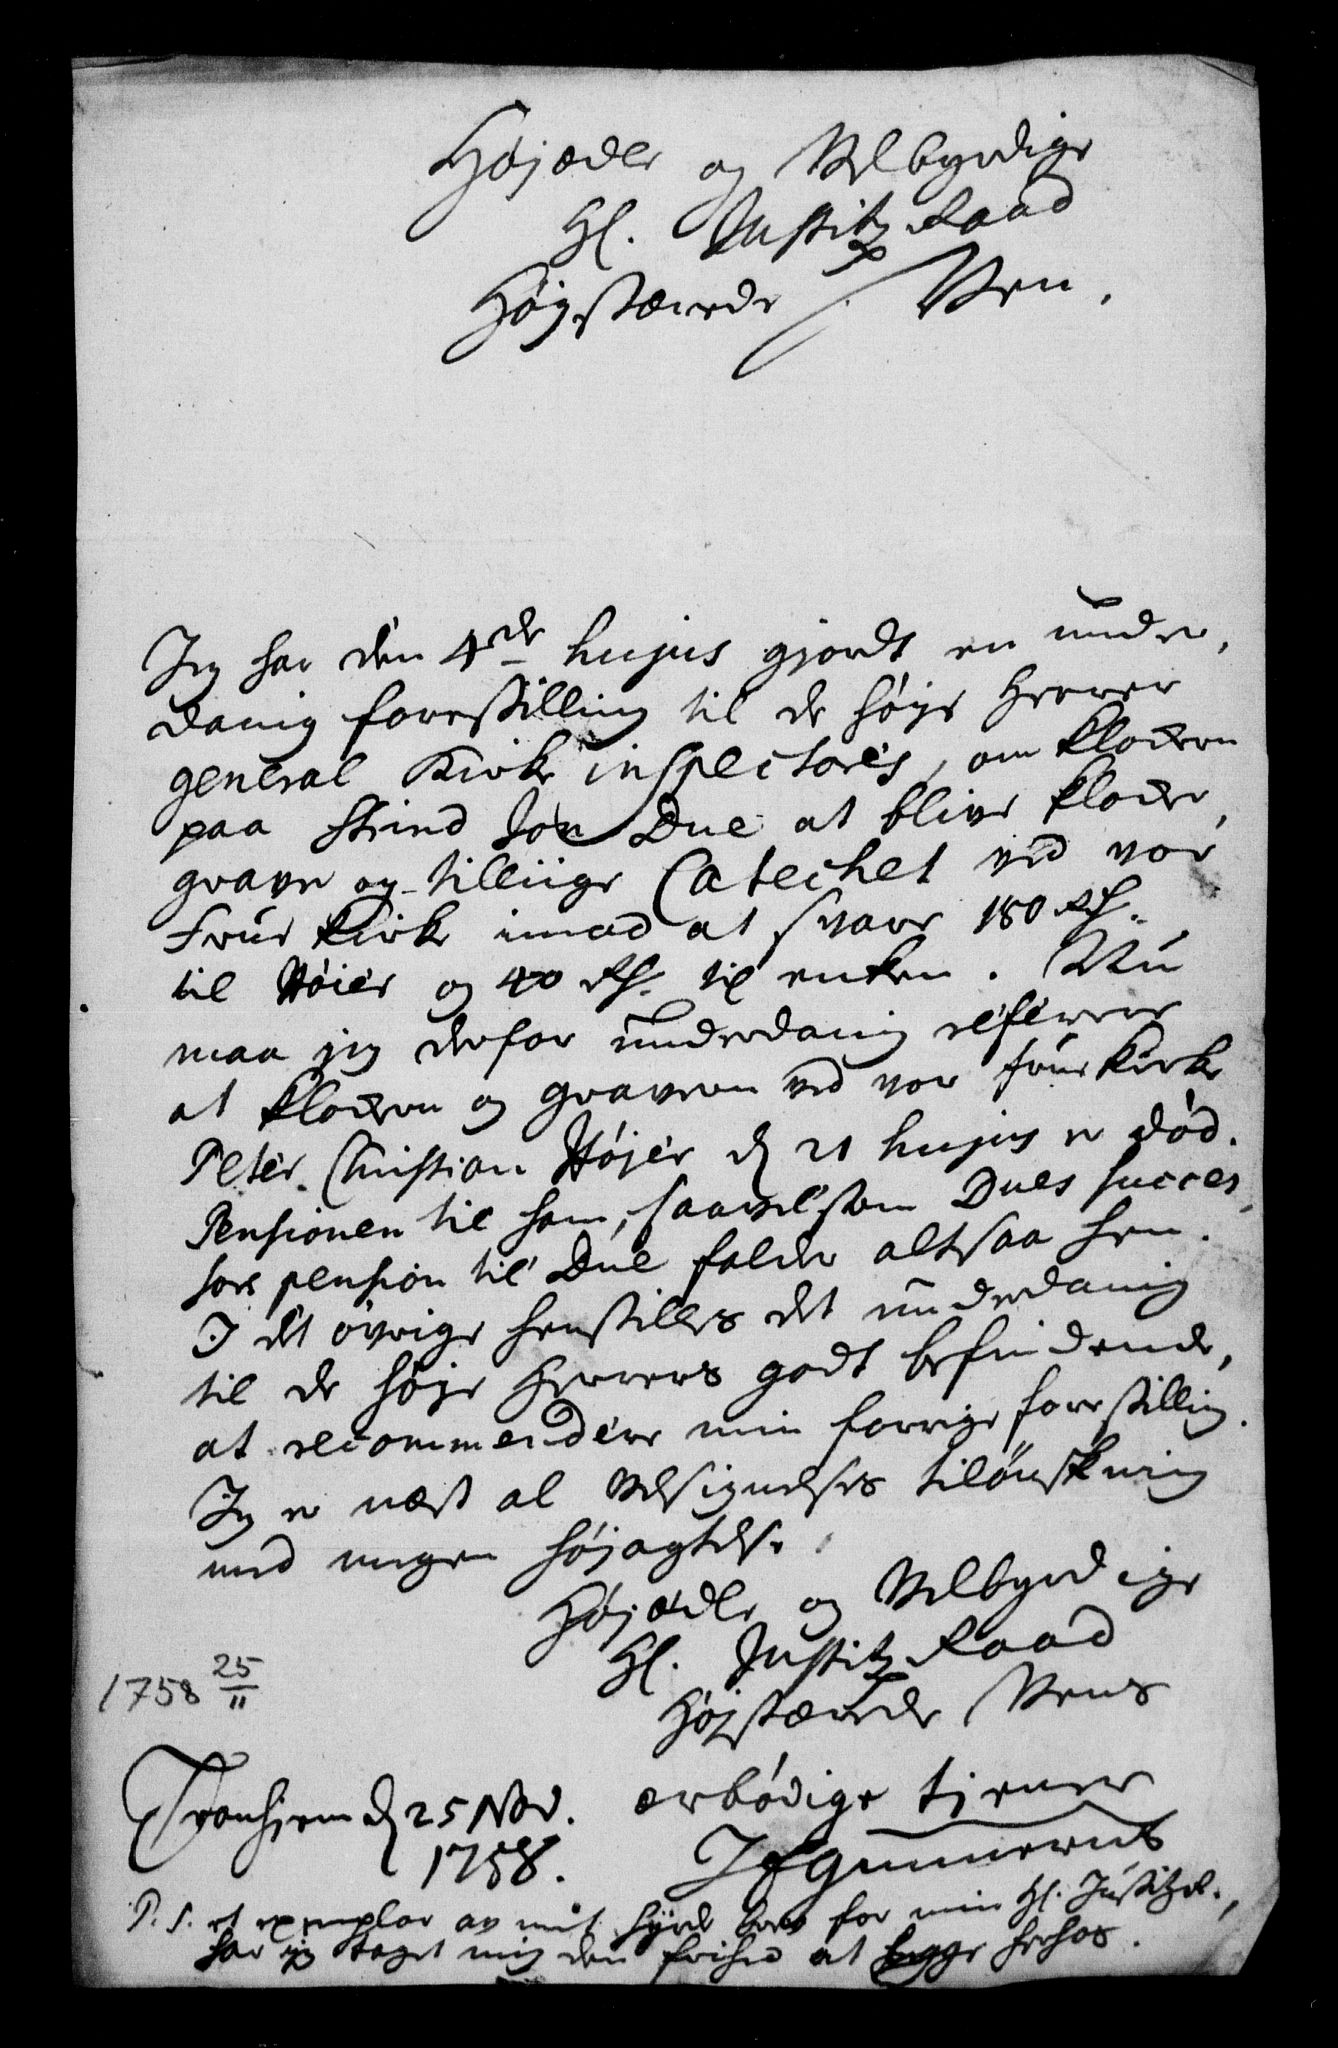 Højædle og Velbyrdige
Hl. Justitz Raad
Høystærede Ven,
Jeg har den 4de hujus gjordt en under,
danig forestilling til de høje Herrer
general Kirke inspectores, om klokren
paa Strind Jon Due at blive klokr,
graver og tilliige Catechet ved vor
Frue Kirke imod at svare 180 Rd.
til Høier og 40 Rd. til enken. Nu
maa jeg derfor underdanig referere
at klokren og graveren ved vor frue Kirke
Peter Christian Højer d 21 hujus er død.
Pensionen til ham, saavelsom Dues succes,
sors pension til Due falder altsaa hen.
I det øvrige henstilles det underdanig
til de høje Herrers godt befindende,
at recommendere min forrige forestilling.
Jeg er næst al Velsignelses tilønskning
med megen højagtelse
Højædle og Velbyrdige
Hl. Justitz Raad
Højstærede Vens
1758 25/11
Tronhjem d 25 Nov. ærbødige tjener
1758. JEGunnerus
P. S. et exemplar av mit hyrde brev for min Hl. Justitzr.,
har jeg taget mig den frihed at legge herhos.